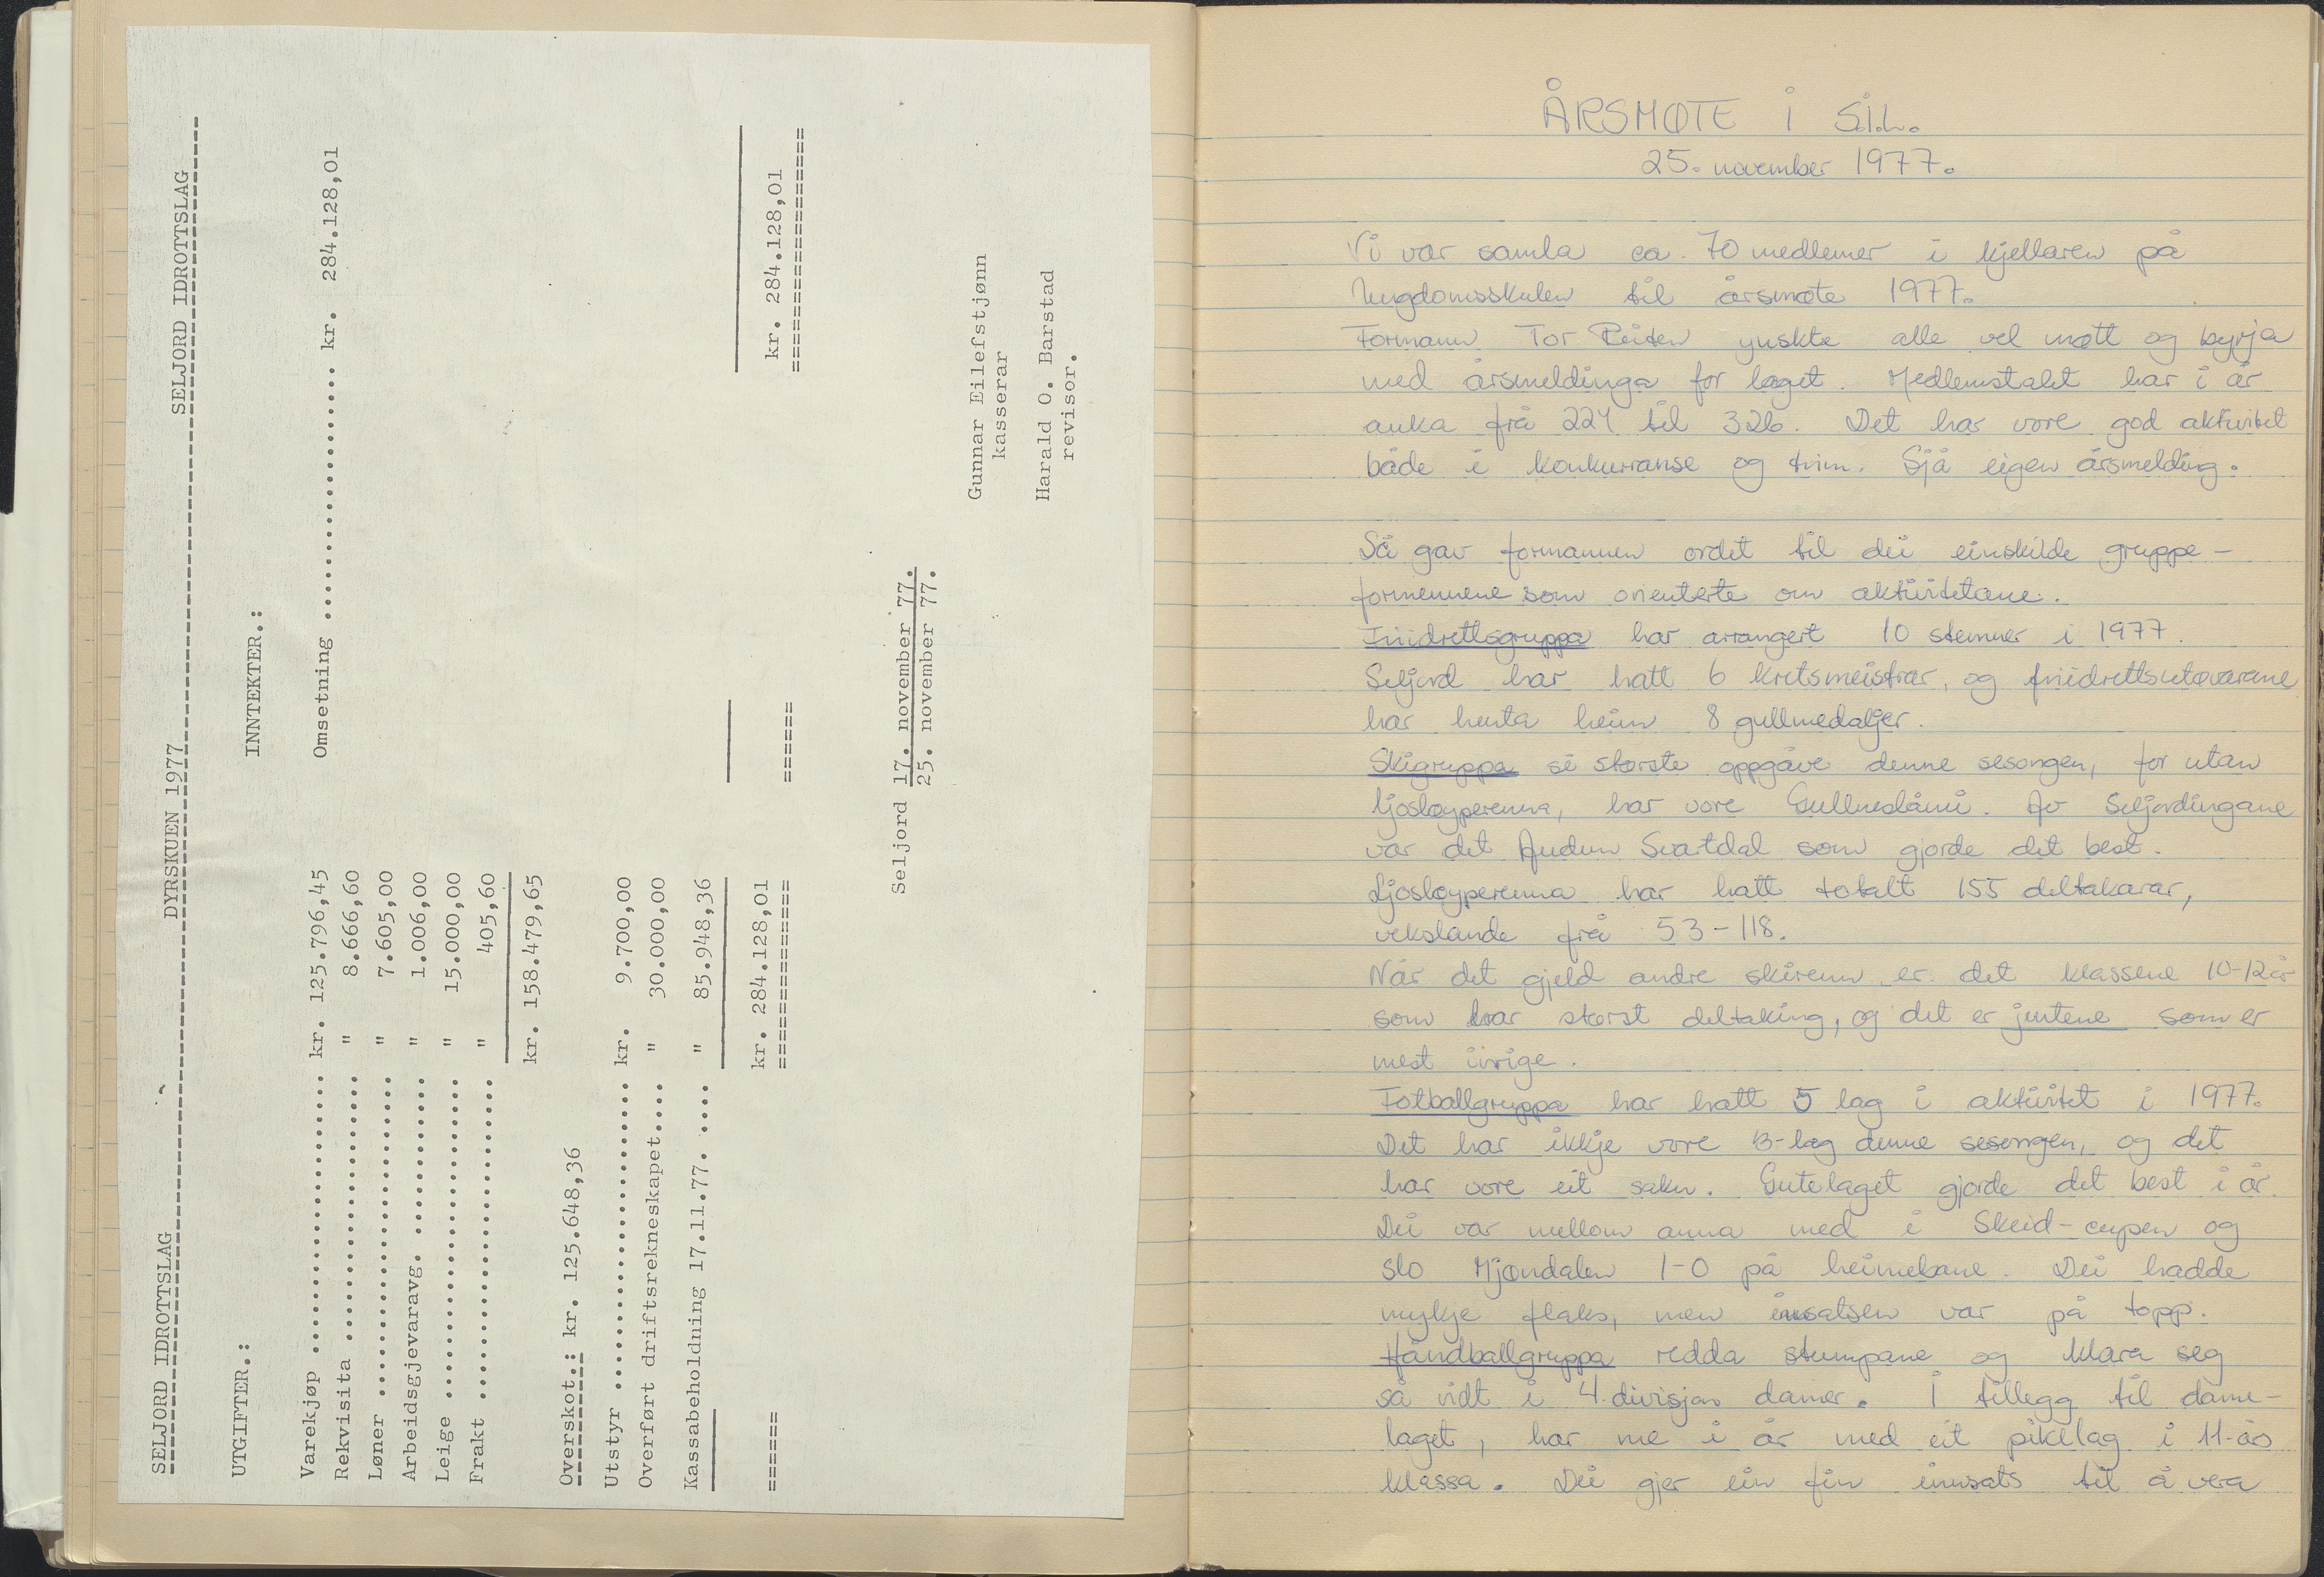 SELJORD IDROTTSLAG DYRSKUEN 1977 SELJORD IDROTTSLAG
UTGIFTER.: INNTEKTER.:
Varekjøp ........................ kr. 125.796,45 Omsetning ..................... kr. 284.128,01
Rekvisita ...................... " 8.666,60
Løner .......................... " 7.605,00
Arbeidsgjevaravg. ............. " 1.006,00
Leige .......................... " 15.000,00
Frakt .......................... " 405,60
kr. 158.479,65
Overskot.: kr. 125.648,36
Utstyr ......................... kr. 9.700,00
Overført driftsrekneskapet.... " 30.000,00
Kassabeholdning 17.11.77. .... " 85.948,36
kr. 284.128,01 kr. 284.128,01
Seljord 17. november 77.
25. november 77.
Gunnar Eilefstjønn
kasserar
Harald O. Barstad
revisor.
ÅRSMØTE i S.I.L.
25. november 1977.
Vi var samla ca. 70 medlemer i kjellaren på
Ungdomsskulen til årsmøte 1977.
Formann Tor Reiten ynskte alle vel møtt og byrja
med årsmeldinga for laget. Medlemstalet har i år
auka frå 224 til 326. Det har vore god aktivitet
både i konkurranse og trim. Sjå eigen årsmelding.
Så gav formannen ordet til dei einskilde gruppe-
formennene som orienterte om aktivitetane.
Friidrettsgruppa har arrangert 10 stemner i 1977.
Seljord har hatt 6 kretsmeistrar, og friidrettsutøvarane
har henta heim 8 gullmedaljer.
Skigruppa si største oppgåve denne sesongen, for utan
ljosløyperenna, har vore Gullnesløami. Av Seljordingane
var det Audun Svartdal som gjorde det best.
Ljosløyperenna har hatt totalt 155 deltakarar,
vekslande frå 53-118.
Når det gjeld andre skirenn er det klassene 10-12 år
som har størst deltaking, og det er jentene som er
mest ivrige.
Fotballgruppa har hatt 5 lag i aktivitet i 1977.
Det har ikkje vore B-lag denne sesongen, og det
har vore eit sakn. Gutelaget gjorde det best i år.
Dei var mellom anna med i Skeid-cupen og
slo Mjøndalen 1-0 på heimebane. Dei hadde
mykje flaks, men innsatsen var på topp.
Håndballgruppa redda stumpane og klara seg
så vidt i 4. divisjon damer. I tillegg til dame-
laget, har me i år med eit pikelag i 11-års
klassa. Dei gjer ein fin innsats til å vera